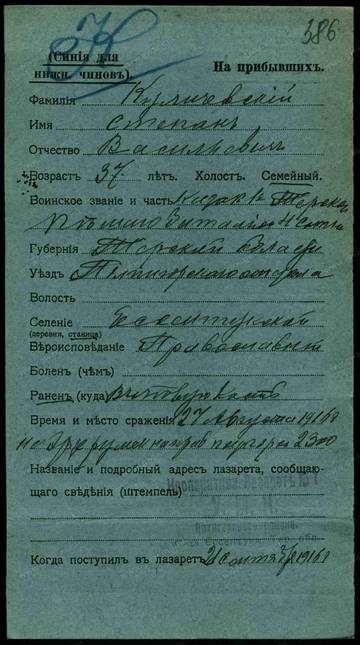 К
386
(Синія для
нижн. чиновъ).
На прибывшихъ.
Фамилія Куличевскій
Имя Степанъ
Отчество Васильевичъ
Возрастъ 37 лѣтъ. Холостъ. Семейный.
Воинское званіе и часть Казакъ Терскаго
баталіона 4 сотни
Губернія Терской области
Уѣздъ Пятигорскаго отдѣла
Волость
Селеніе Ессентукской
(деревня, станица)
Вѣроисповѣданіе Православный
Боленъ (чѣмъ)
Раненъ (куда)
Время и мѣсто сраженія 27 Августа 1916 г
Названіе и подробный адресъ лазарета, сообщаю-
щаго свѣдѣнія (штемпель)
Когда поступилъ въ лазаретъ 21 сентября 1916 г